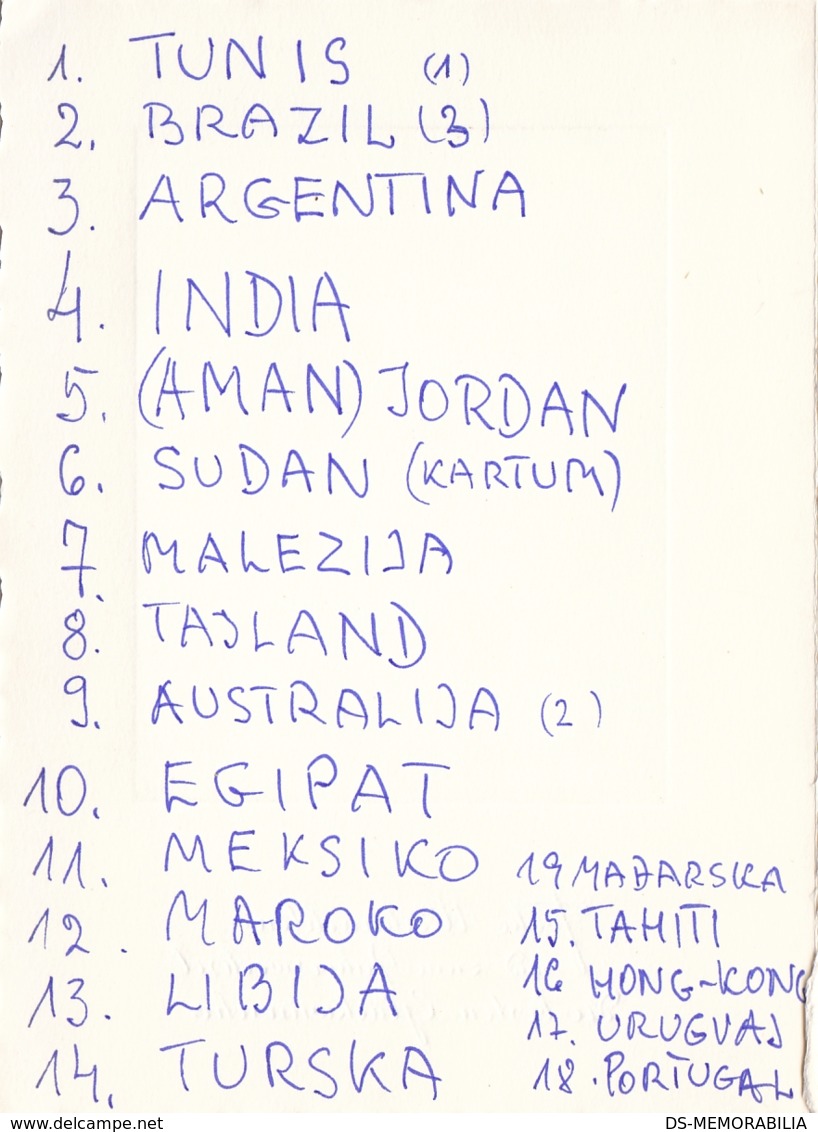 1. TUNIS (1)
2. BRAZIL (3)
3. ARGENTINA
4. INDIA
5. (AMAN) JORDAN
6. SUDAN (KARTUM)
7. MALEZIJA
8. TAJLAND
9. AUSTRALIJA (2)
10. EGIPAT
11. MEKSIKO
12. MAROKO
13. LIBIJA
14. TURSKA
19 MAĐARSKA
15. TAHITI
16 HONG-KONG
17. URUGVAJ
18. PORTUGAL
www.delcampe.net
DS-MEMORABILIA